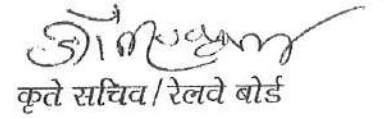 कृते सचिव/रेलवे बोर्ड